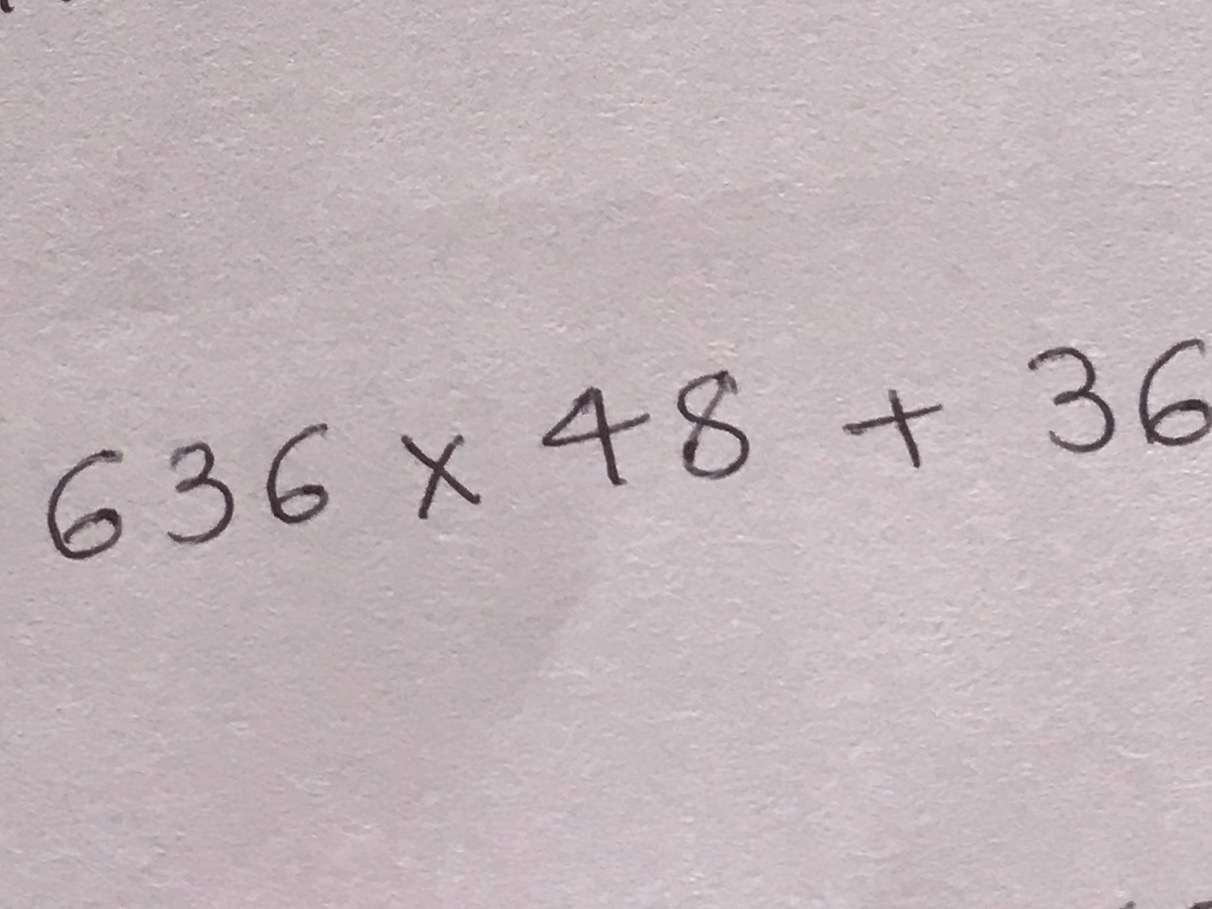 636 x 48 + 36